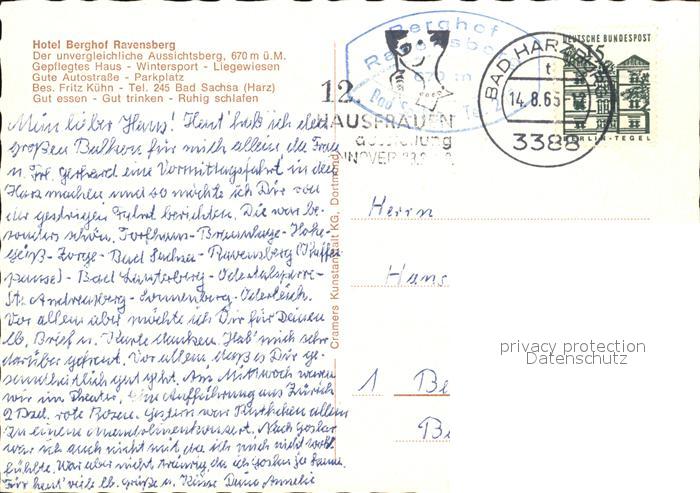 Hotel Berghof Ravensberg
Der unvergleichliche Aussichtsberg, 670 m ü.M.
Gepflegtes Haus - Wintersport - Liegewiesen
Gute Autostraße - Parkplatz
Bes. Fritz Kühn - Tel. 245 Bad Sachsa (Harz)
Gut essen - Gut trinken - Ruhig schlafen
Berghof
670 m
12.
HAUSFRAUEN
ausstellung
BAD HARZ
14.8.65
3388
DEUTSCHE BUNDESPOST
15
BERLIN-TEGEL
Mein lieber Hans! Heut' hab' ich den
großen Balkon für mich allein da Frau
u. Frl. Gerhard eine Vormittagsfahrt in den
Harz machen und so möchte ich Dir von
der gestrigen Fahrt berichten. Die war be-
sonders schön. Torfhaus - Braunlage - Hohe-
geiß - Zorge - Bad Sachsa - Ravensberg (Kaffee-
pause) - Bad Lauterberg - Odertalsperre -
St. Andreasberg - Sonnenberg - Oderteich.
Vor allem aber möchte ich Dir für Deinen
lb. Brief u. Karte danken. Hab' mich sehr
darüber gefreut. Vor allem daß es Dir ge-
sundheitlich gut geht. Am Mittwoch waren
wir im Theater. Eine Aufführung aus Zürich
2 Dzd. rote Rosen. Gestern war
in einem Mandolinenkonzert. Nach Goslar
war ich auch nicht mit da ich mich nicht wohl
fühlte. War aber nicht traurig da ich Goslar ja kenne.
Für heut' viele lb. Grüße u. Küsse Deine Annelie
Cramers Kunstanstalt KG, Dortmund
Herrn
Hans
1 Be
B
privacy protection
Datenschutz